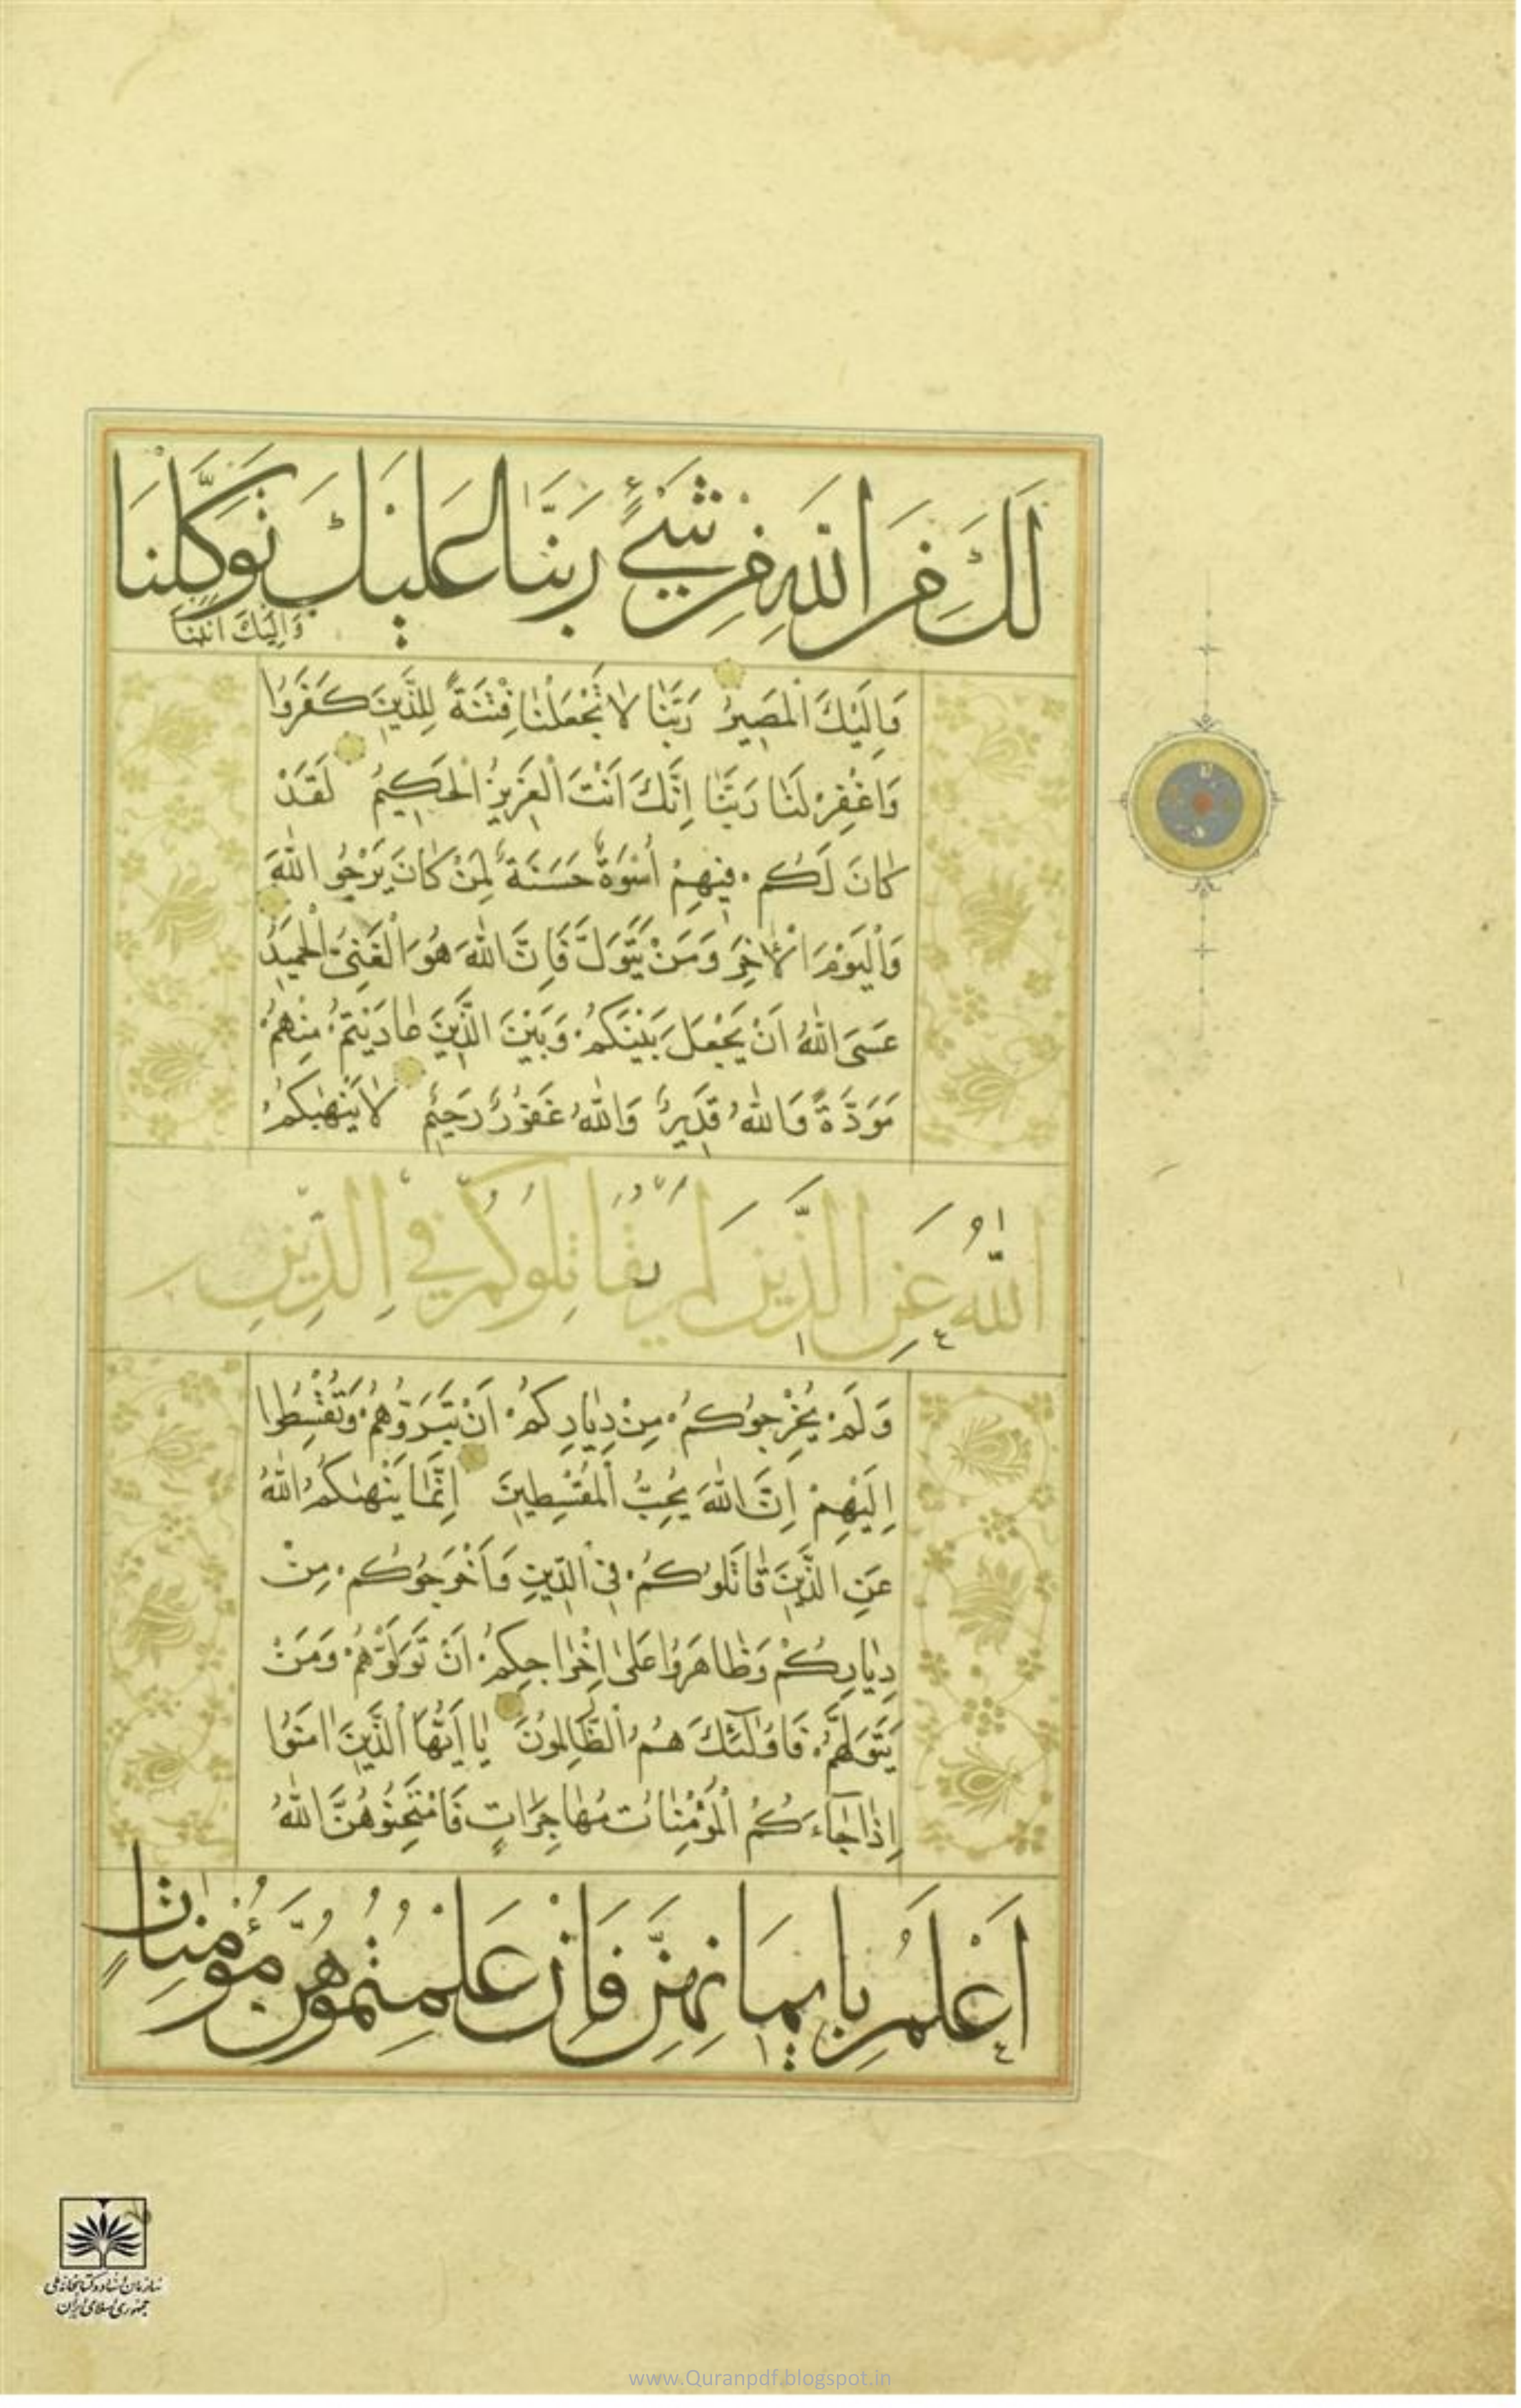 لَكَ مِنَ اللّٰهِ مِنْ شَيْءٍ رَبَّنَا عَلَيْكَ تَوَكَّلْنَا
وَاِلَيْكَ اَنَبْنَا
وَاِلَيْكَ الْمَصِيرُ رَبَّنَا لَا تَجْعَلْنَا فِتْنَةً لِلَّذِينَ كَفَرُوا
وَاغْفِرْ لَنَا رَبَّنَا اِنَّكَ اَنْتَ الْعَزِيزُ الْحَكِيمُ لَقَدْ
كَانَ لَكُمْ فِيهِمْ اُسْوَةٌ حَسَنَةٌ لِمَنْ كَانَ يَرْجُو اللّٰهَ
وَالْيَوْمَ الْاٰخِرَ وَمَنْ يَتَوَلَّ فَاِنَّ اللّٰهَ هُوَ الْغَنِيُّ الْحَمِيدُ
عَسَى اللّٰهُ اَنْ يَجْعَلَ بَيْنَكُمْ وَبَيْنَ الَّذِينَ عَادَيْتُمْ مِنْهُمْ
مَوَدَّةً وَاللّٰهُ قَدِيرٌ وَاللّٰهُ غَفُورٌ رَحِيمٌ لَا يَنْهٰيكُمُ
اللّٰهُ عَنِ الَّذِينَ لَمْ يُقَاتِلُوكُمْ فِي الدِّينِ
وَلَمْ يُخْرِجُوكُمْ مِنْ دِيَارِكُمْ اَنْ تَبَرُّوهُمْ وَتُقْسِطُوا
اِلَيْهِمْ اِنَّ اللّٰهَ يُحِبُّ الْمُقْسِطِينَ اِنَّمَا يَنْهٰيكُمُ اللّٰهُ
عَنِ الَّذِينَ قَاتَلُوكُمْ فِي الدِّينِ وَاَخْرَجُوكُمْ مِنْ
دِيَارِكُمْ وَظَاهَرُوا عَلٰى اِخْرَاجِكُمْ اَنْ تَوَلَّوْهُمْ وَمَنْ
يَتَوَلَّهُمْ فَاُولٰئِكَ هُمُ الظَّالِمُونَ يَا اَيُّهَا الَّذِينَ اٰمَنُوا
اِذَا جَاءَكُمُ الْمُؤْمِنَاتُ مُهَاجِرَاتٍ فَامْتَحِنُوهُنَّ اللّٰهُ
اَعْلَمُ بِاِيمَانِهِنَّ فَاِنْ عَلِمْتُمُوهُنَّ مُؤْمِنَاتٍ
سازمان اسناد و کتابخانه ملی
جمهوری اسلامی ایران
www.Quranpdf.blogspot.in